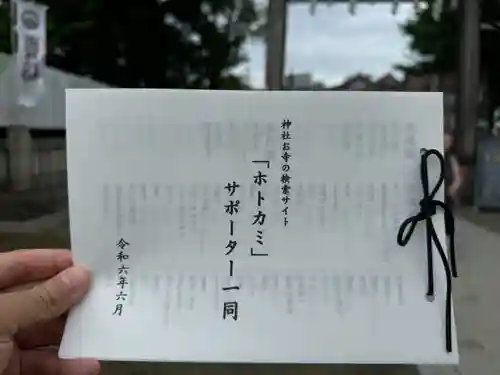 神社お寺の検索サイト
「ホトカミ」
サポーター一同
令和六年六月